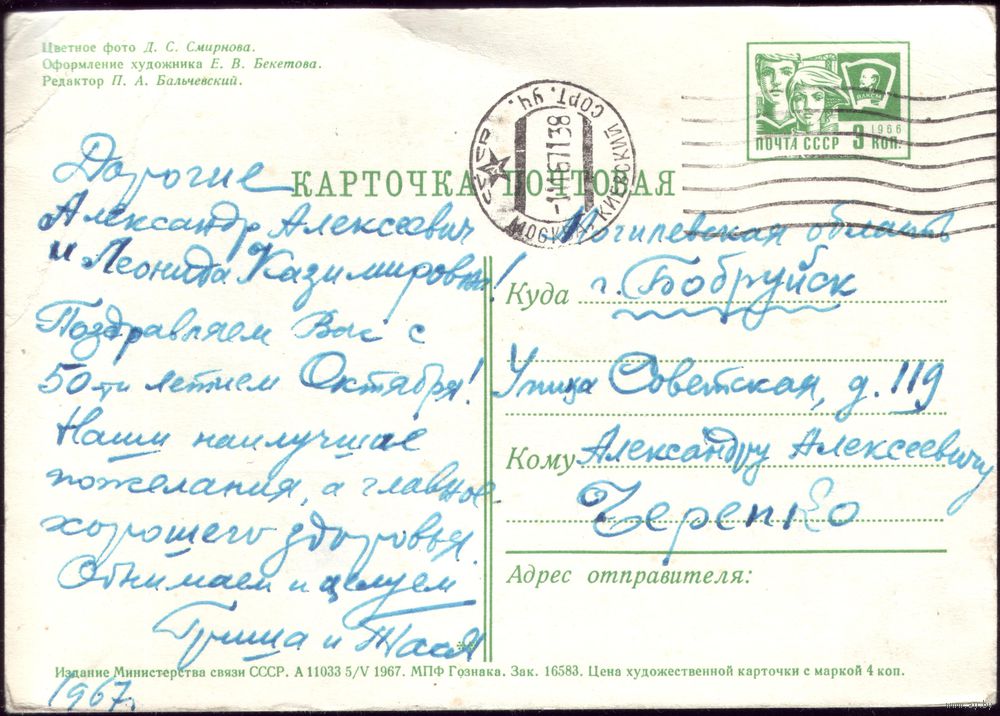 Цветное фото Д. С. Смирнова.
Оформление художника Е. В. Бекетова.
Редактор П. А. Бальчевский.
ВЛКСМ
1966
ПОЧТА СССР 3 КОП.
СССР
МОСКВА КИЕВСКИЙ СОРТ. УЧ.
КАРТОЧКА ПОЧТОВАЯ
Дорогие
Александр Алексеевич
и Леонида Казимировна!
Поздравляем Вас с
50ти летием Октября!
Наши наилучшие
пожелания, а главное
хорошего здоровья.
Обнимаем и целуем
Гриша и Тася
1967г.
Могилевская область
Куда г. Бобруйск
Улица Советская, д. 119
Кому Александру Алексеевичу
Черепко
Адрес отправителя:
Издание Министерства связи СССР. А 11033 5/V 1967. МПФ Гознака. Зак. 16583. Цена художественной карточки с маркой 4 коп.